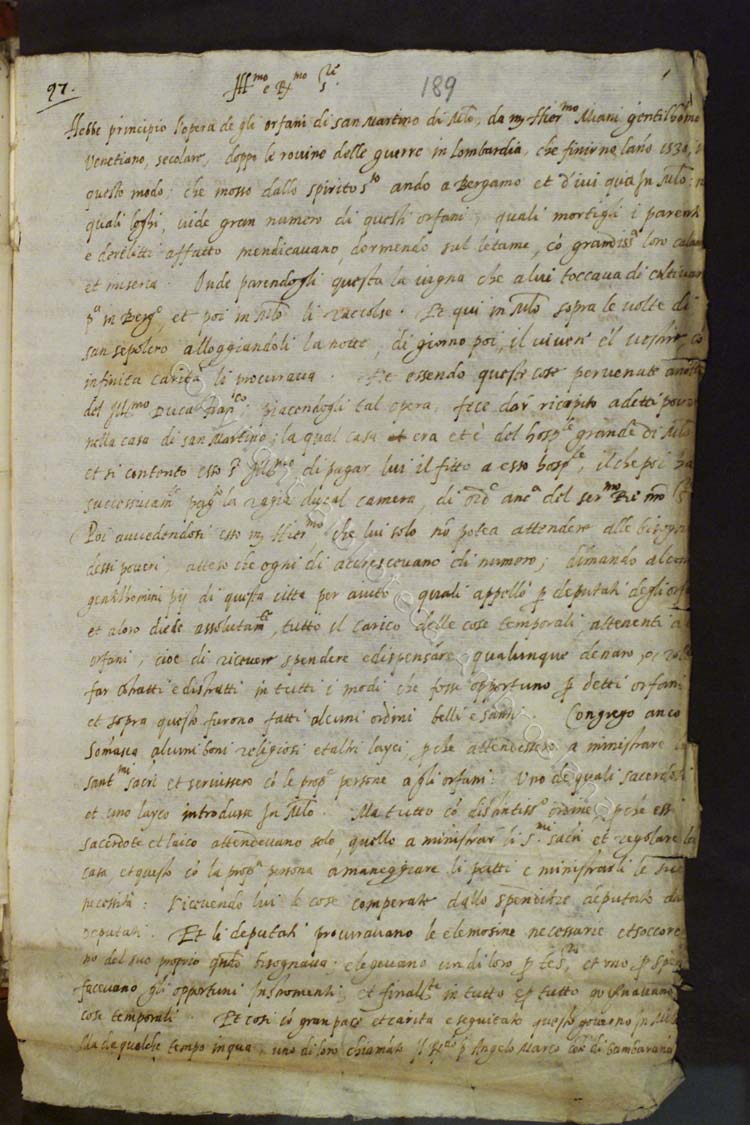 97.
Ill^mo e R^mo S^re
189
Hebbe principio l'opera de gli orfani di san Martino di Mil^o, da m^r Hier^mo Miani gentilhomo
Venetiano, secolare, doppo le rovine delle guerre in lombardia, che finirno l'anno 1530, in
questo modo; che mosso dallo spirito s^to ando a Bergamo et d'ivi qua in Mil^o; ne
quali loghi, vide gran numero di questi orfani, quali mortigli i parenti
e derelitti affatto mendicavano, dormendo sul letame, co grandiss^a loro
et miseria. Onde parendogli questa la vigna che a lui toccava di cultivar
p^a in Berg^o, et poi in Mil^o li raccolse. Et qui in Mil^o sopra le volte di
san sepolcro alloggiandoli la notte, di giorno poi, il viver e'l vestir co
infinita carità li procurava. Et essendo queste cose pervenute
del Ill^mo Duca Fran^co, piacendogli tal opera, fece dar ricapito a detti poveri
nella casa di san Martino; la qual casa era et è del hosp^le grande di Mil^o
et si contentò esso S^r Ill^mo di pagar lui il fitto a esso hosp^le, il che poi ha
successivam^te pag^to la regia ducal camera, di ord^e anc^a del ser^mo Re
Poi avvedendosi esso m^r Hier^mo che lui solo no potea attendere alle bisogni
dessi poveri, atteso che ogni di accrescevano di numero; dimandò alcuni
gentilhomini pij di questa citta per aiuto quali appellò p deputati degli orfani
et a loro diede assolutam^te, tutto il carico delle cose temporali, attenenti a
orfani, cioe di ricever spendere e dispensare qualunque denaro, o
far cotratti e distratti in tutti i modi che fosse opportuno p detti orfani
et sopra questo furono fatti alcuni ordini belli e santi. Congregò anco
Somasca alcuni boni religiosi et altri layci, p che attendessero a ministrare
sant^mi sacri et servissero co le prop^e persone a gli orfani: Uno de quali sacerdoti
et uno layco introdusse in Mil^o. Ma tutto co distintiss^o ordine, p che essi
sacerdote et laico attendevano solo, quello a ministrar li s^mi sacri et regolare la
casa et questo co la prop^a persona a maneggiare li putti e ministrarli le sue
necessità: ricevendo lui le cose comperate dallo spenditore deputato da
deputati. Et li deputati procuravano le elemosine necessarie et soccore
no del suo proprio q^to bisognava; elegevano un di loro p tes^re, et uno p
facevano gli opportuni instromenti, et final^te in tutto e p tutto governavano
cose temporali. Et cosi co gran pace et carità e seguitato questo governo in Mil^o
Ma da qualche tempo in qua, uno di loro chiamato il R^do p Angelo Marco di Gambarana